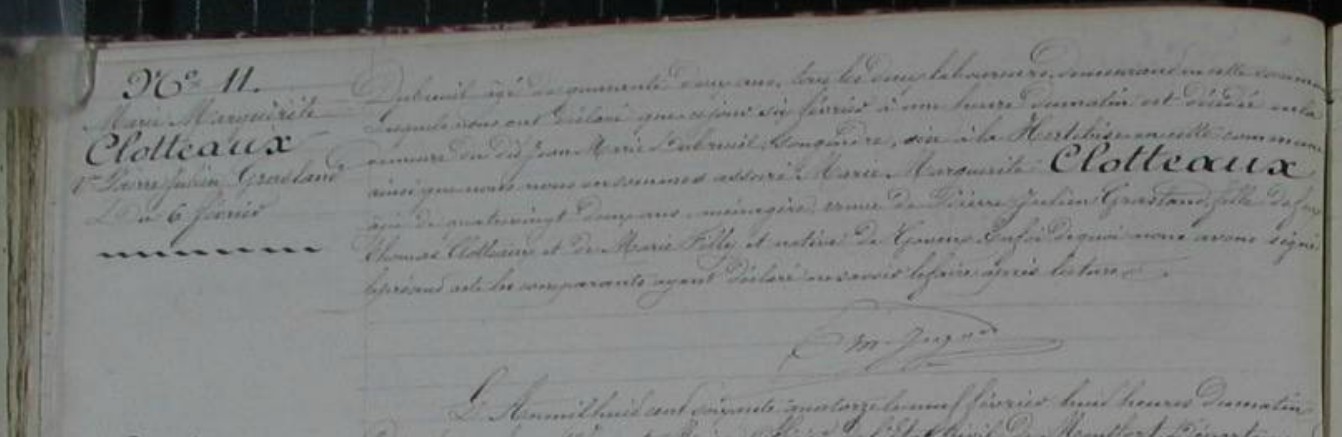 Nº 11.
Marie Marguerite
Clotteaux
Vᵉ Pierre Julien Grasland
Du 6 février
Dubreuil âgé de quarante deux ans, tous les deux laboureurs, demeurant en cette commune
lesquels nous ont déclaré que ce jour six février à une heure du matin est décédée en la
demeure du dit Jean Marie Dubreuil, son gendre, sise à la Hertebise en cette commune
ainsi que nous nous en sommes assuré, Marie Marguerite Clotteaux
âgée de quatrevingt deux ans, ménagère, veuve de Pierre Julien Grasland, fille de feu
Thomas Clotteaux et de Marie Filly et native de Goven. En foi de quoi nous avons signé
le présent acte les comparants ayant déclaré ne savoir le faire après lecture.
L'An mil huit cent soixante quatorze le neuf février huit heures du matin
de l'Etat Civil de Montfort